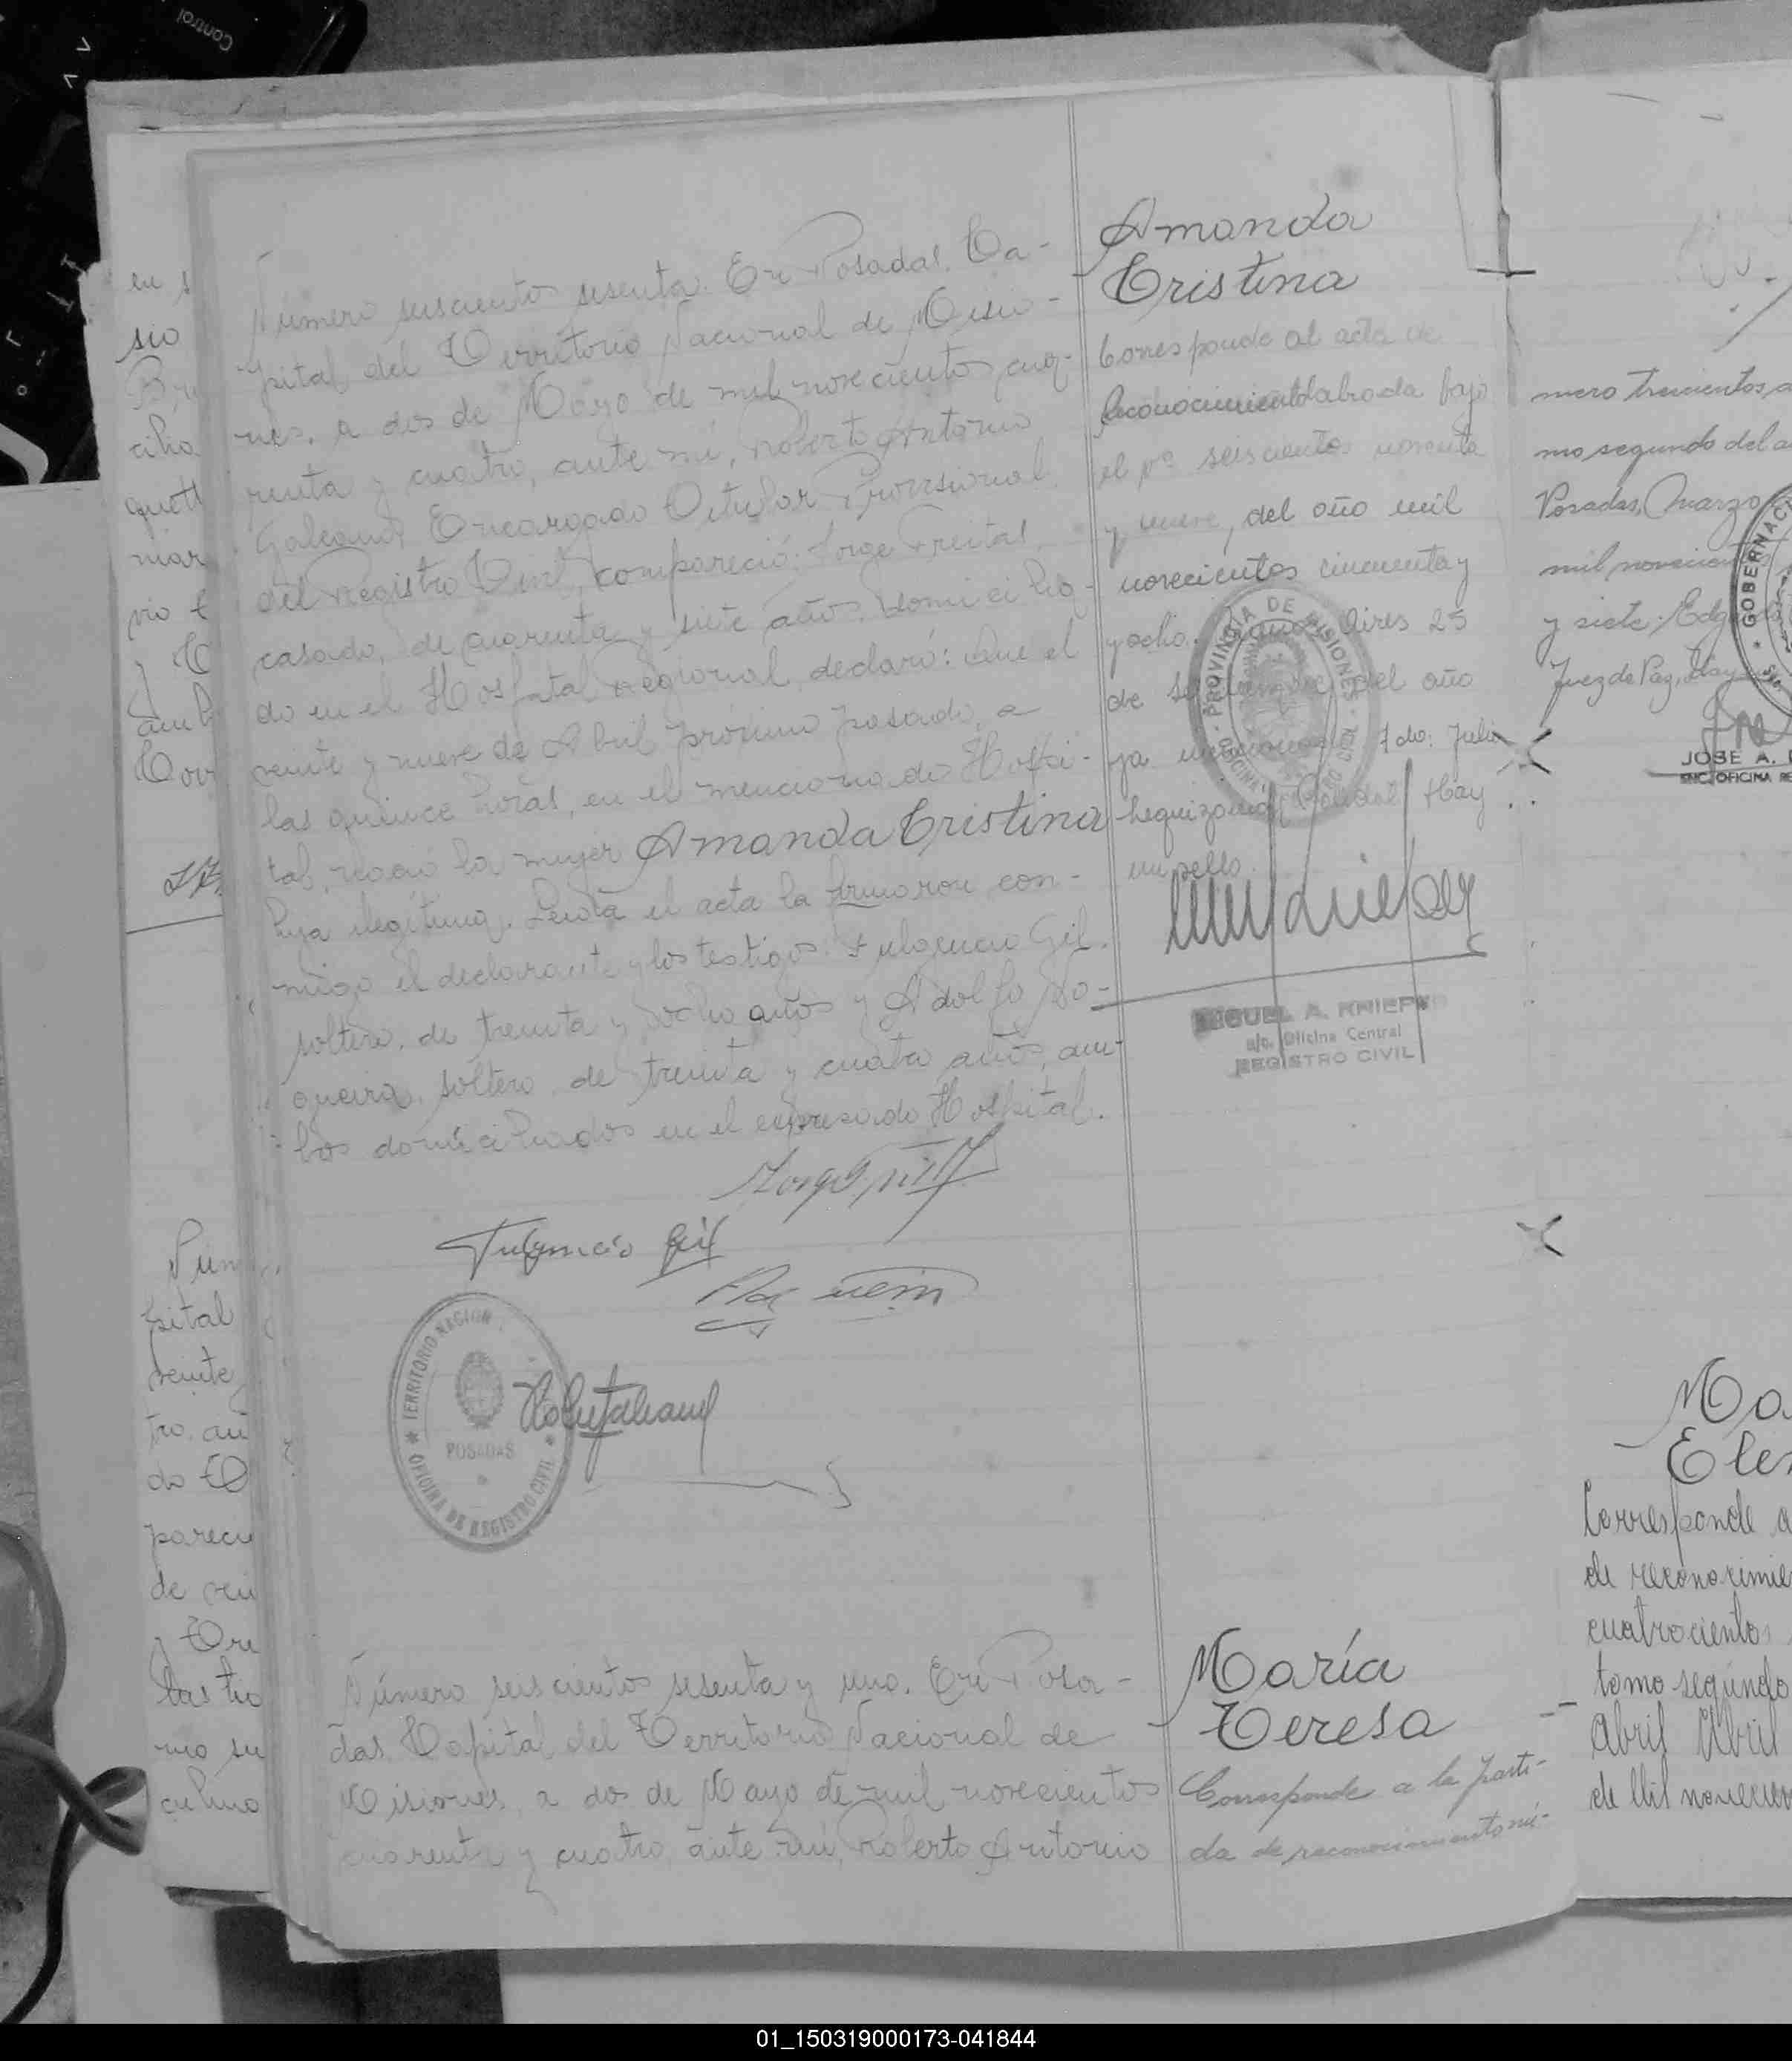 Control
en s
sio
Bru
cilio
quett
mar
vio
y
amb
Número seiscientos sesenta. En Posadas, Ca-
pital del Territorio Nacional de Misio-
nes, a dos de Mayo de mil novecientos cua-
renta y cuatro, ante mí, Roberto Antonio
Galeano, Encargado Titular Provisional
del Registro Civil, compareció: Jorge Freitas,
casado, de cuarenta y siete años, domicilia-
do en el Hospital Regional, declaró: Que el
veinte y nueve de Abril próximo pasado, a
las quince horas, en el mencionado Hospi-
tal, nació la mujer Amanda Cristina
hija ilegítima. Leída el acta la firmaron con-
migo el declarante y los testigos: Fulgencio Gil,
soltero, de treinta y ocho años y Adolfo No-
gueira, soltero, de treinta y cuatro años, am-
bos domiciliados en el expresado Hospital.
Fulgencio Gil
TERRITORIO NACION
POSADAS
OFICINA DE REGISTRO CIVIL
Amanda
Cristina
Corresponde al acta de
Reconocimiento labrada bajo
el nº seiscientos noventa
y nueve, del año mil
novecientos cincuenta y
y ocho. Buenos Aires 25
de del año
ya mencionado Fdo: Julio
Leguizamón Hay
un sello.
PROVINCIA DE MISIONES
MIGUEL A. KRIEPER
a/c. Oficina Central
REGISTRO CIVIL
Núm
pital
veinte
tro, an
do
pareci
de vei
y
las
mo su
Número seiscientos sesenta y uno. En Posa-
das, Capital del Territorio Nacional de
Misiones, a dos de Mayo de mil novecientos
cuarenta y cuatro, ante mí, Roberto Antonio
María
Teresa
Corresponde a la parti-
da de reconocimiento nú-
mero trescientos
mo segundo del a
Posadas, Marzo
mil novecientos
y siete. Edg
Juez de Paz, Hay
GOBERNACI
JOSE A.
ENC. OFICINA RE
Ma
Ele
Corresponde a
de reconocimie
cuatrocientos
tomo segundo
Abril Abril
de Mil novecien
01_150319000173-041844